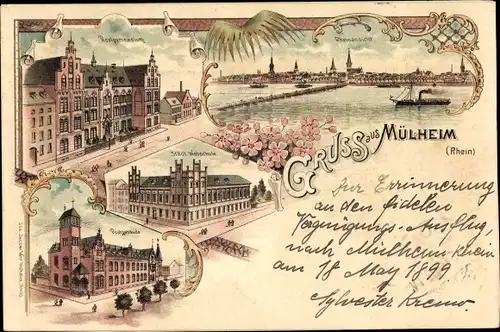 Realgymnasium
Rheinansicht
GRUSS aus MÜLHEIM
(Rhein)
Städt. Webschule
Zur Erinnerung
an den fidelen
Vergnügungs-Ausflug,
nach Mülheim-Rhein
am 18 May 1899.
Sylvester